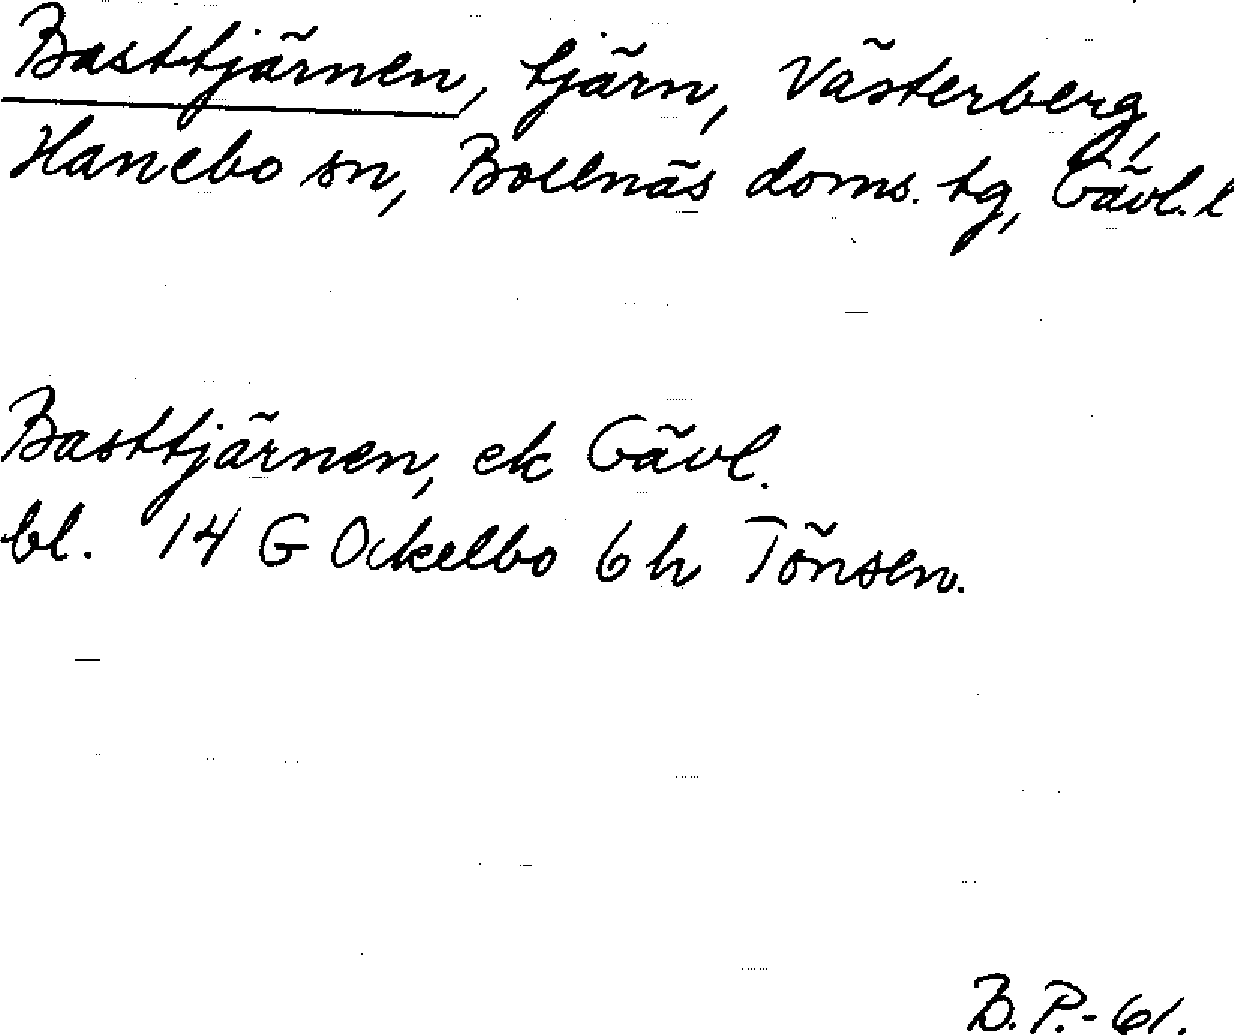 Basttjärnen, tjärn, Västerberg,
Hanebo sn, Bollnäs doms. tg, Gävl. l
Basttjärnen, ek Gävl.
bl. 14 G Ockelbo 6 h Tönsen.
B. P.-61.